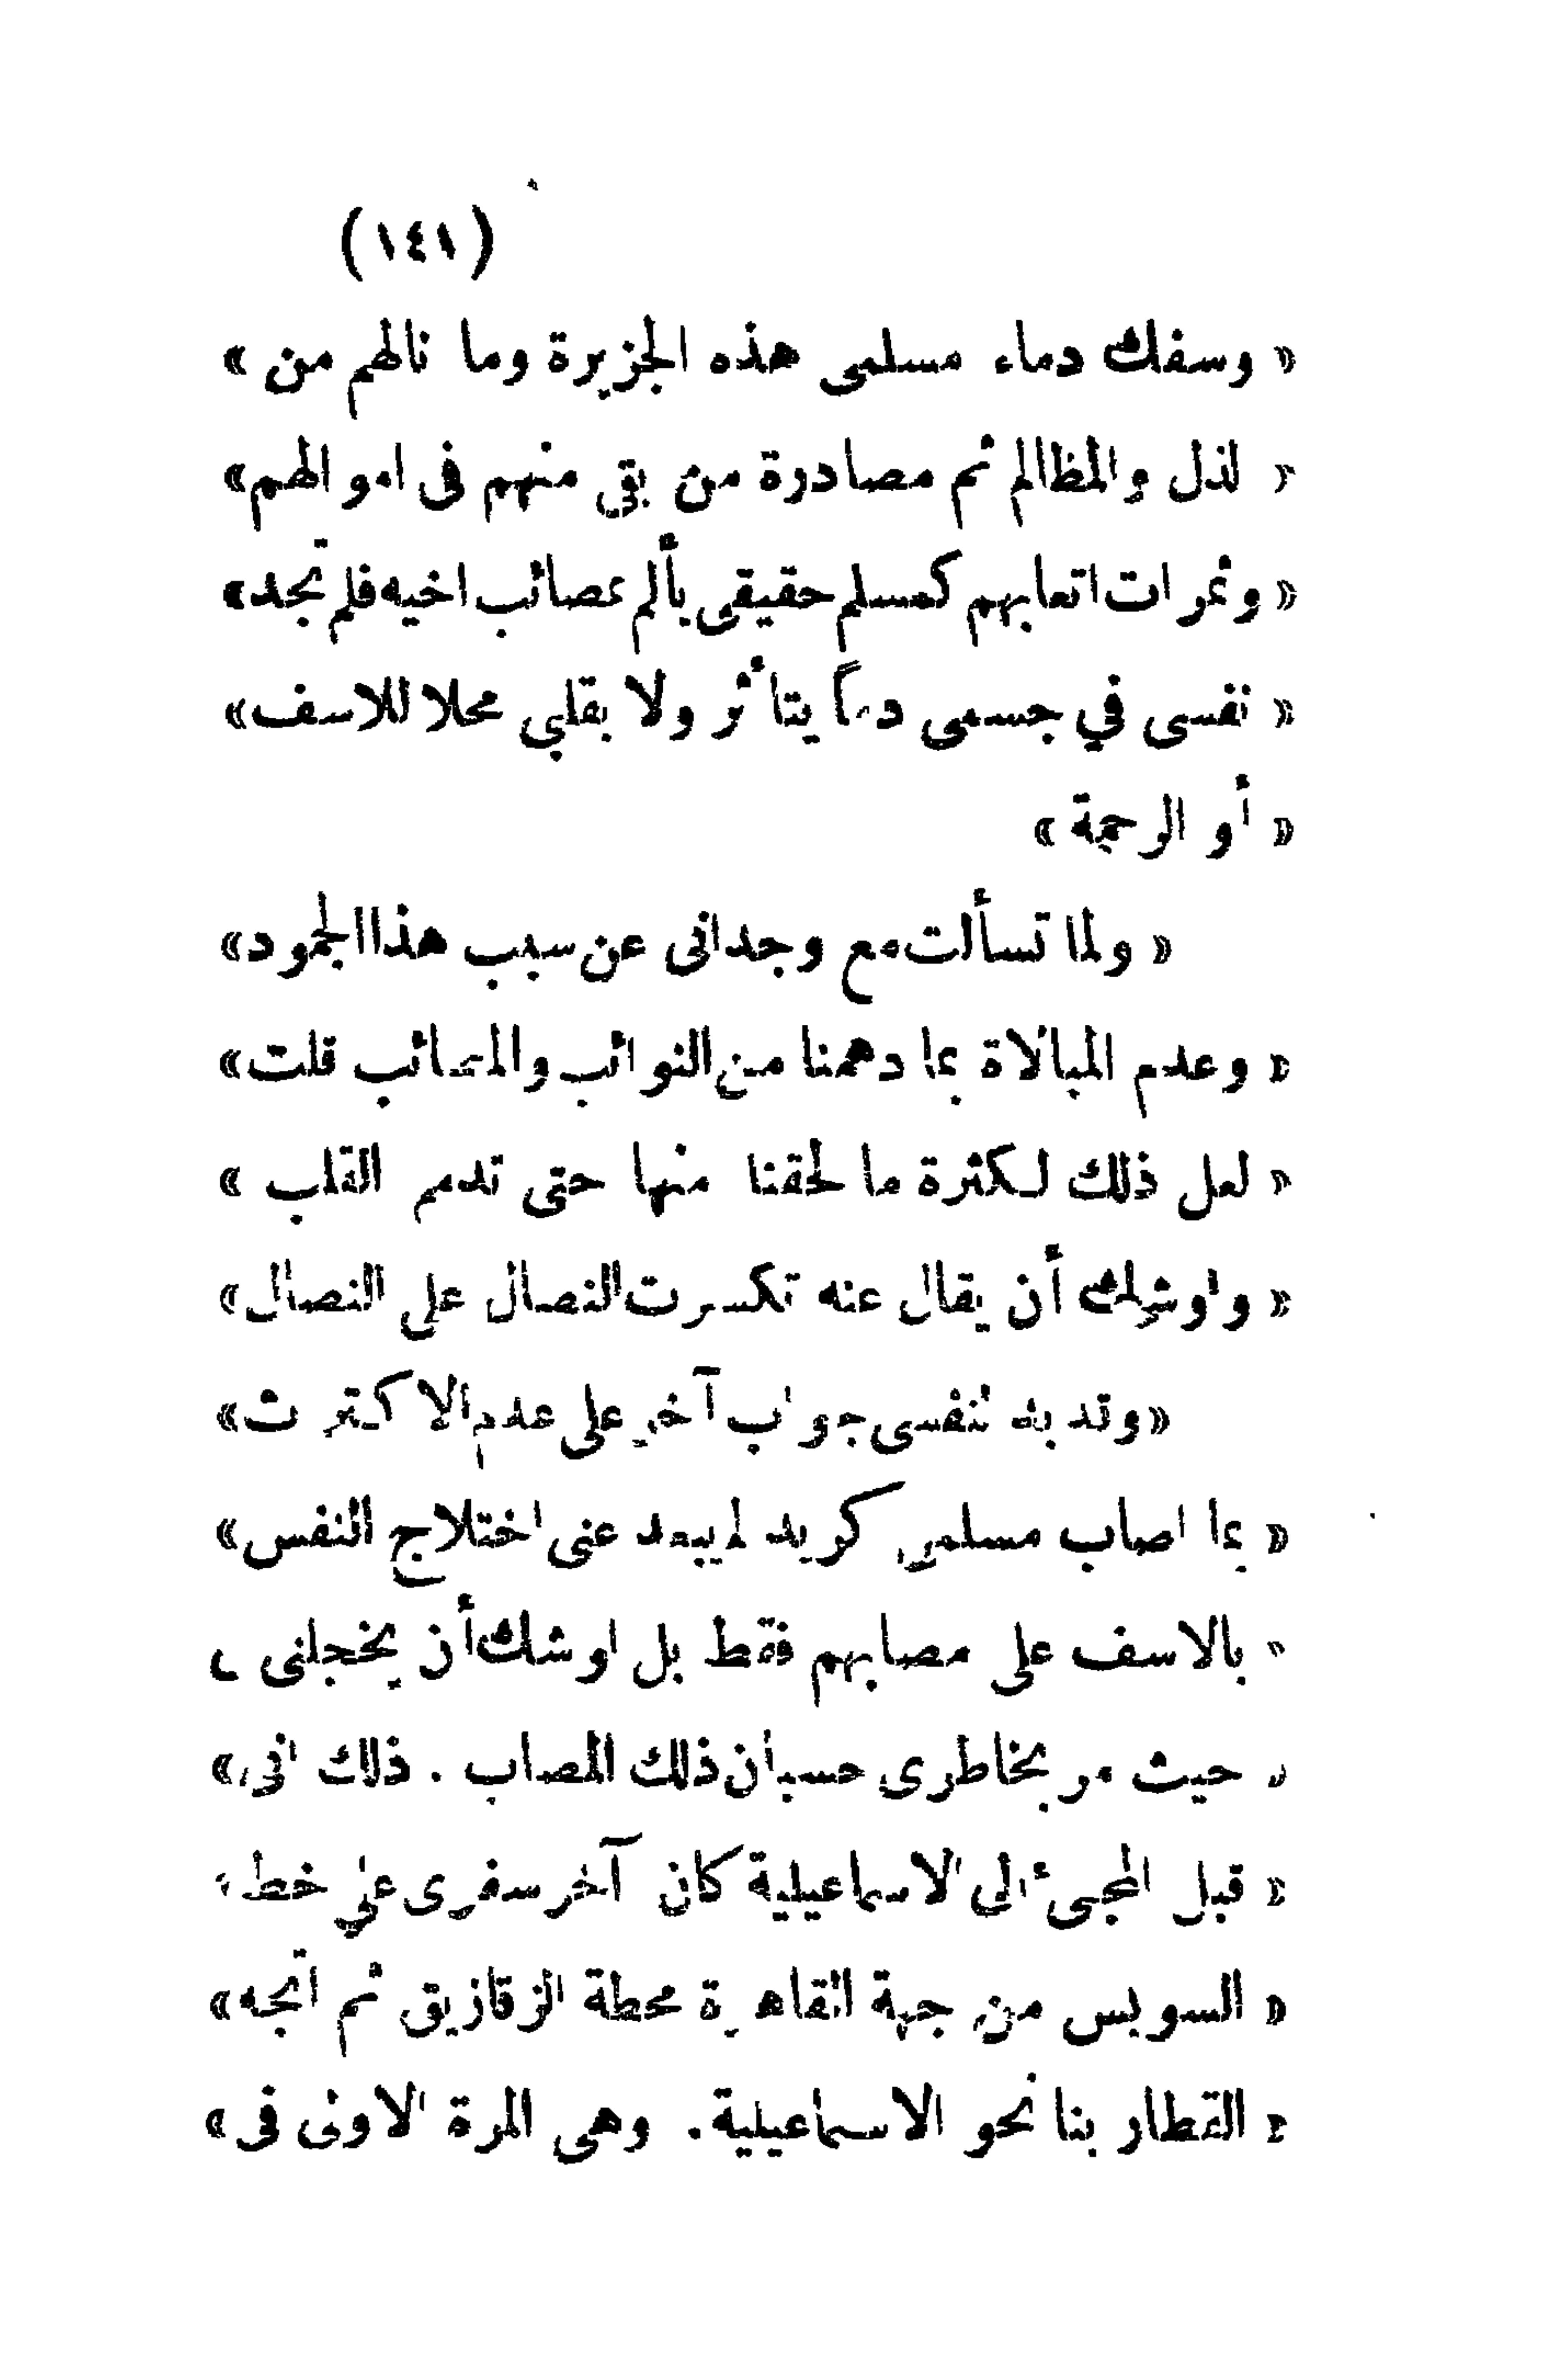 (١٤١)
« وسفك دماء مسلمى هذه الجزيرة وما نالهم من »
« لذل والمظالم ثم مصادرة من بقى منهم فى اموالهم»
« وثمرات اتعابهم كمسلم حقيقى يألم عصائب اخيه فلم تجد»
« نفسى في جسمى دماً يتأثر ولا بقلبي محلا للاسف»
« أو الرحمة »
« ولما تسألت مع وجدانى عن سبب هذا الجمود»
« وعدم المبالاة بما دهمنا من النوائب والمصائب قلت»
« لعل ذلك لكثرة ما لحقنا منها حتى تدمم القلب »
« واوشك أن يقال عنه تكسرت النصال على النصال»
«وقد بد لنفسى جواب آخر على عدم الاكتر ث»
« بما اصاب مسلمى كريد لم يبعد عنى اختلاج النفس»
« بالاسف على مصابهم فقط بل اوشك أن يخجلنى »
« حيث مر بخاطرى حسبان ذلك المصاب . ذلك انى»
« قبل المجئ الى الاسماعيلية كان آخر سفرى على خط »
« السويس من جهة القاهرة محطة الزقازيق ثم اتجه»
« القطار بنا نحو الاسماعيلية. وهى المرة الاولى فى»